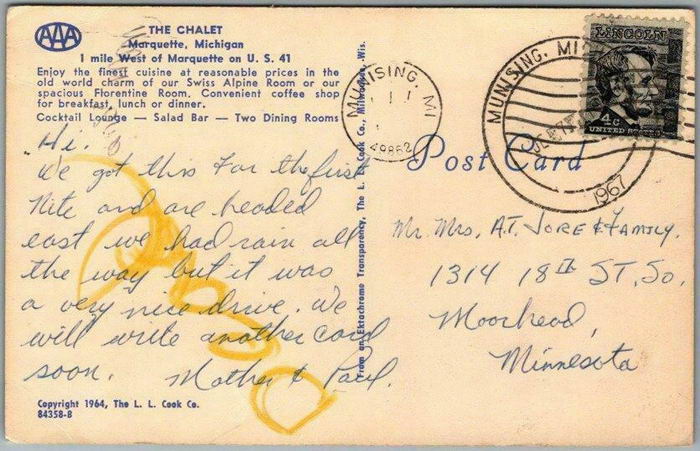 AAA
THE CHALET
Marquette, Michigan
1 mile West of Marquette on U. S. 41
Enjoy the finest cuisine at reasonable prices in the
old world charm of our Swiss Alpine Room or our
spacious Florentine Room. Convenient coffee shop
for breakfast, lunch or dinner.
Cocktail Lounge — Salad Bar — Two Dining Rooms
Hi.
We got this far the first
Nite and are headed
east we had rain all
the way but it was
a very nice drive. We
will write another card
soon. Mother & Paul.
Copyright 1964, The L. L. Cook Co.
84358-B
From an Ektachrome Transparency, The L. L. Cook Co., Milwaukee, Wis.
MUNISING, MI
49862
MUNISING, MI
1967
LINCOLN
4c
UNITED STATES
Post Card
Mr. Mrs. A.T. JORE & FAMILY.
1314 18th ST. So.
Moorhead,
Minnesota